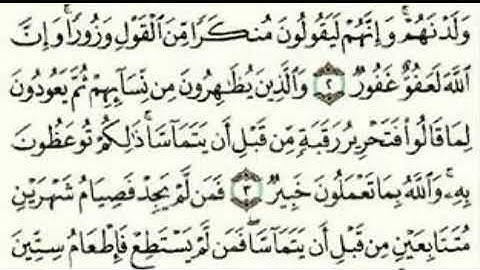 وَلَدْنَهُمْ ۚ وَإِنَّهُمْ لَيَقُولُونَ مُنكَرًا مِّنَ ٱلْقَوْلِ وَزُورًا ۚ وَإِنَّ
ٱللَّهَ لَعَفُوٌّ غَفُورٌ ٢ وَٱلَّذِينَ يُظَٰهِرُونَ مِن نِّسَآئِهِمْ ثُمَّ يَعُودُونَ
لِمَا قَالُوا۟ فَتَحْرِيرُ رَقَبَةٍ مِّن قَبْلِ أَن يَتَمَآسَّا ۚ ذَٰلِكُمْ تُوعَظُونَ
بِهِۦ ۚ وَٱللَّهُ بِمَا تَعْمَلُونَ خَبِيرٌ ٣ فَمَن لَّمْ يَجِدْ فَصِيَامُ شَهْرَيْنِ
مُتَتَابِعَيْنِ مِن قَبْلِ أَن يَتَمَآسَّا ۖ فَمَن لَّمْ يَسْتَطِعْ فَإِطْعَامُ سِتِّينَ